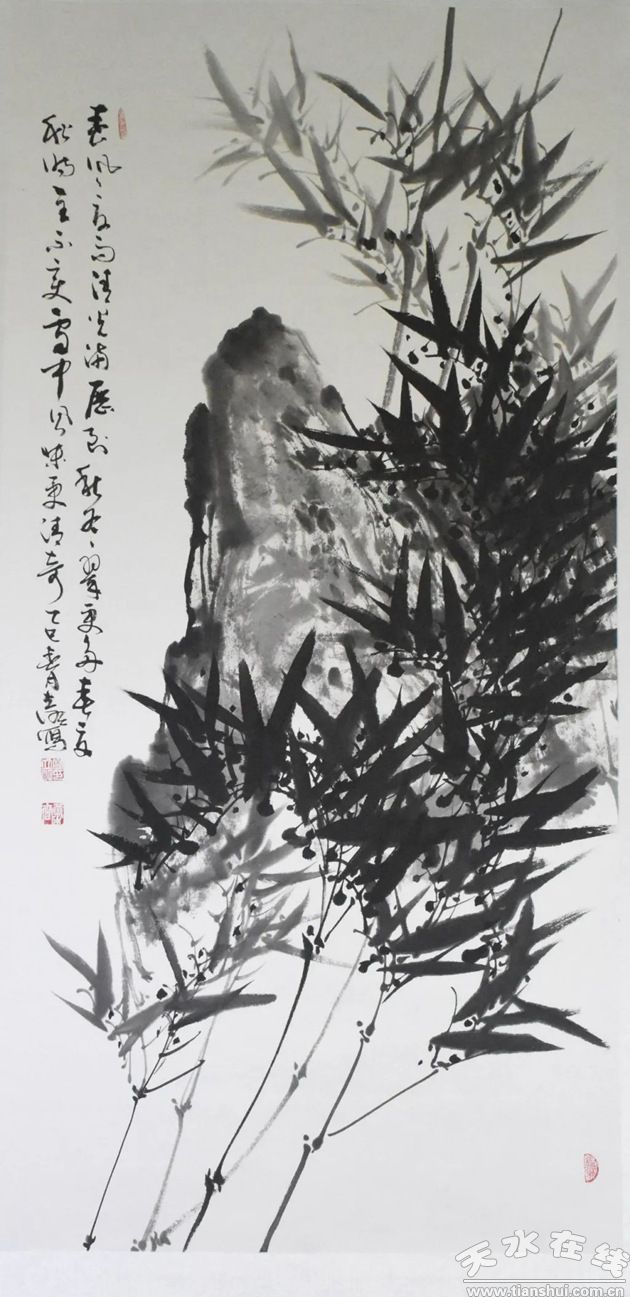 春风夜雨清光满历到秋冬翠更多春夏
秋全不变雪中风味更清奇乙巳春月写
天水在线
www.tianshui.com.cn